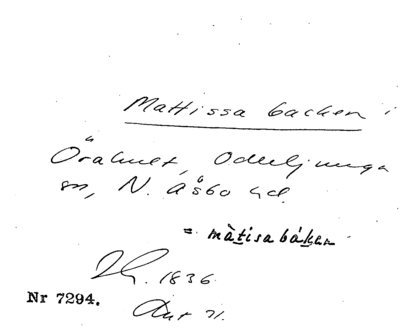 Mattissa backen i
Örahult, Oderljunga
sn, N. Åsbo hd.
= màtisabákan
1836
Nr 7294.